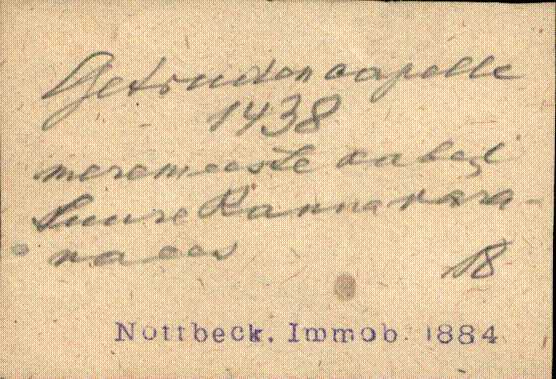 Getruden capelle
1438
meremeeste kabel
Suure Rannavära-
va ees
18
Nottbeck. Immob. 1884